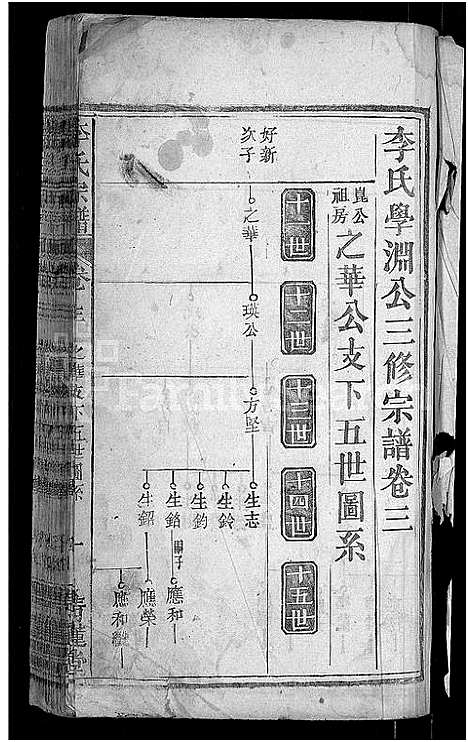 李氏學淵公三修宗譜卷三
崑公祖房
之華公支下五世圖系
十一世
十二世
十三世
十四世
十五世
好新次子
之華
瑛公
方堅
生志
生鈴
生鈞
生鉑
生鋁
應和
應榮
應和
李氏宗譜
卷三
之華支下五世圖系